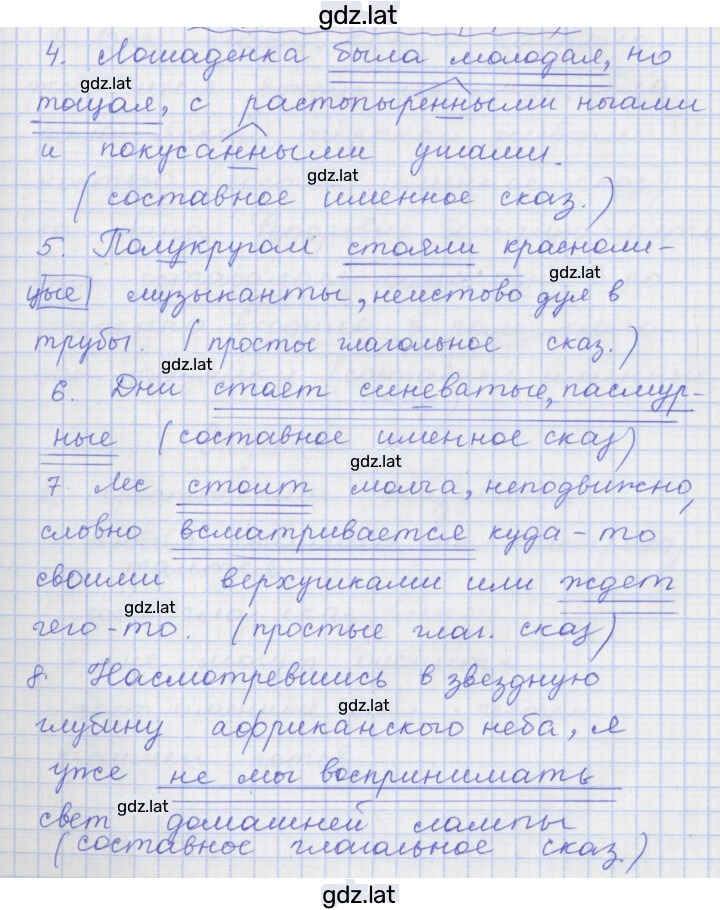 gdz.lat
4. Лошаденка была молодая, но
gdz.lat
тощая, с растопыренными ногами
и покусанными ушами.
gdz.lat
(составное именное сказ.)
5. Полукругом стояли красноли-
gdz.lat
цые музыканты, неистово дуя в
трубы. (просты глагольное сказ.)
gdz.lat
6. Дни стает синеватые, пасмур-
ные (составное именное сказ)
gdz.lat
7. Лес стоит молча, неподвижно,
словно всматривается куда-то
своими верхушками или ждет
gdz.lat
чего-то. (простые глаг. сказ)
8. Насмотревшись в звездную
gdz.lat
глубину африканского неба, я
уже не мы воспринимать
gdz.lat
свет домашней лампы
(составное глагольное сказ)
gdz.lat